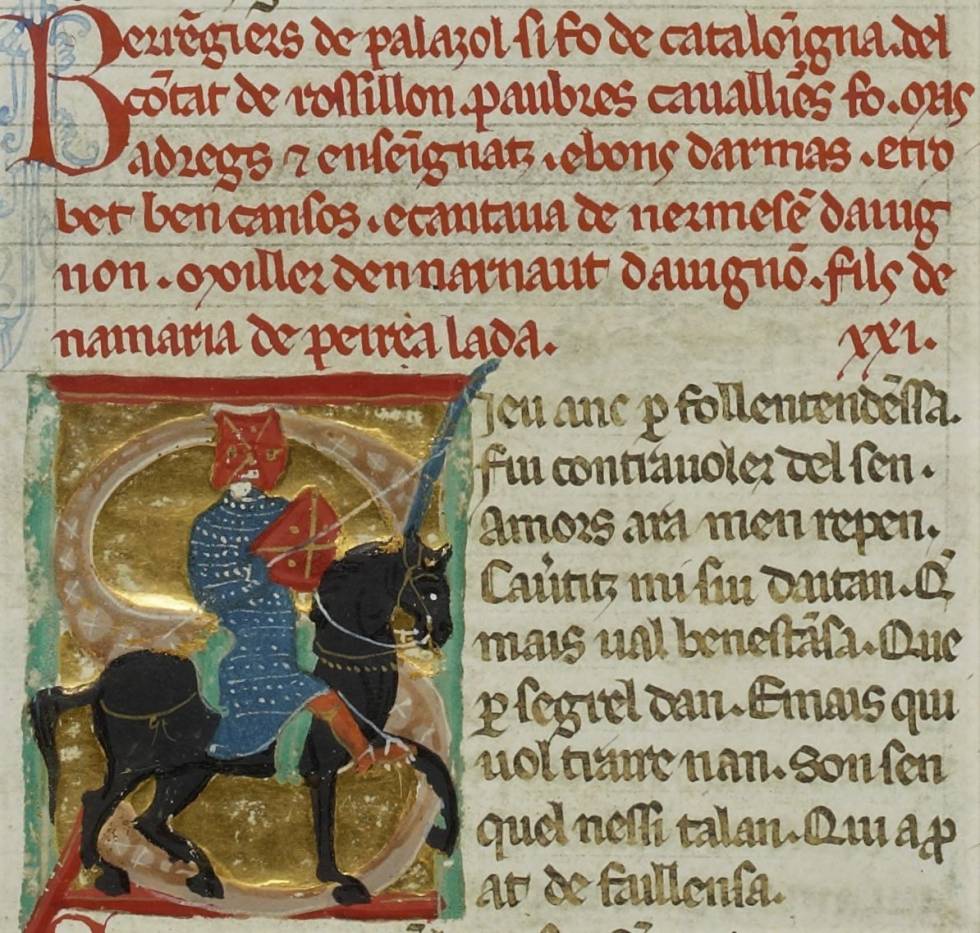 Berrēgiers de palazol si fo de cataloīgna. del
cōtat de rossillon. paubres cauallieͥs fo. mas
adregs ⁊ enseīgnatz. e bons darmas. e tro
bet ben cansos. e cantaua de nermesē dauig
non. moiller den narnaut dauignō. fils de
namaria de peirèa lada. xxi.
S ieu anc ꝑ follentendēssa.
fui contrauoler del sen.
Amors ara men repen.
Cauͥtitz mi sui daitan. Qͥ
mais ual benestāsa. Que
ꝑ segrel dan. E mais qui
uol traire nan. Son sen
quel nessi talan. Qui a ꝑ
at de faillensa.